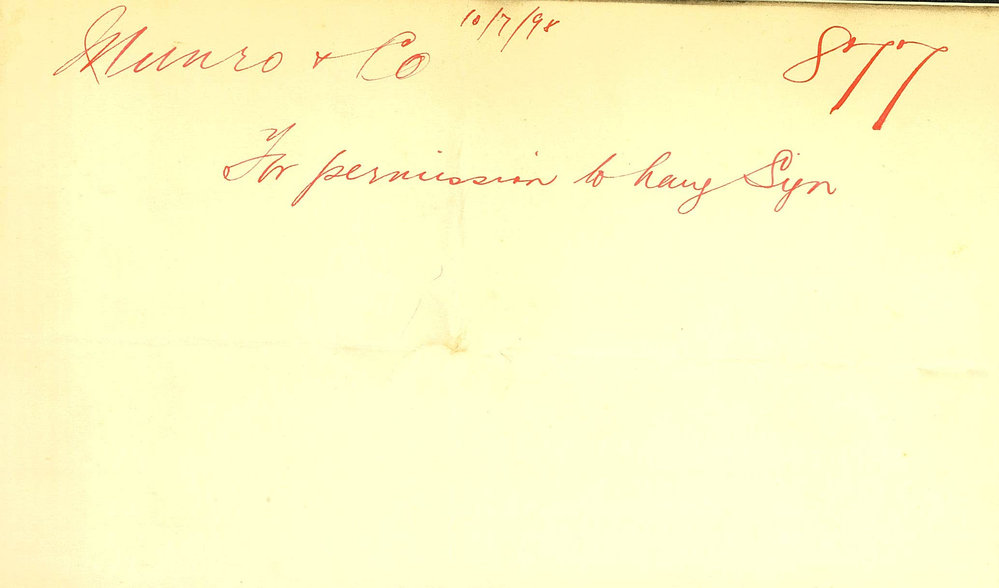 Munro & Co 10/7/98 877
For permission to hang Sign